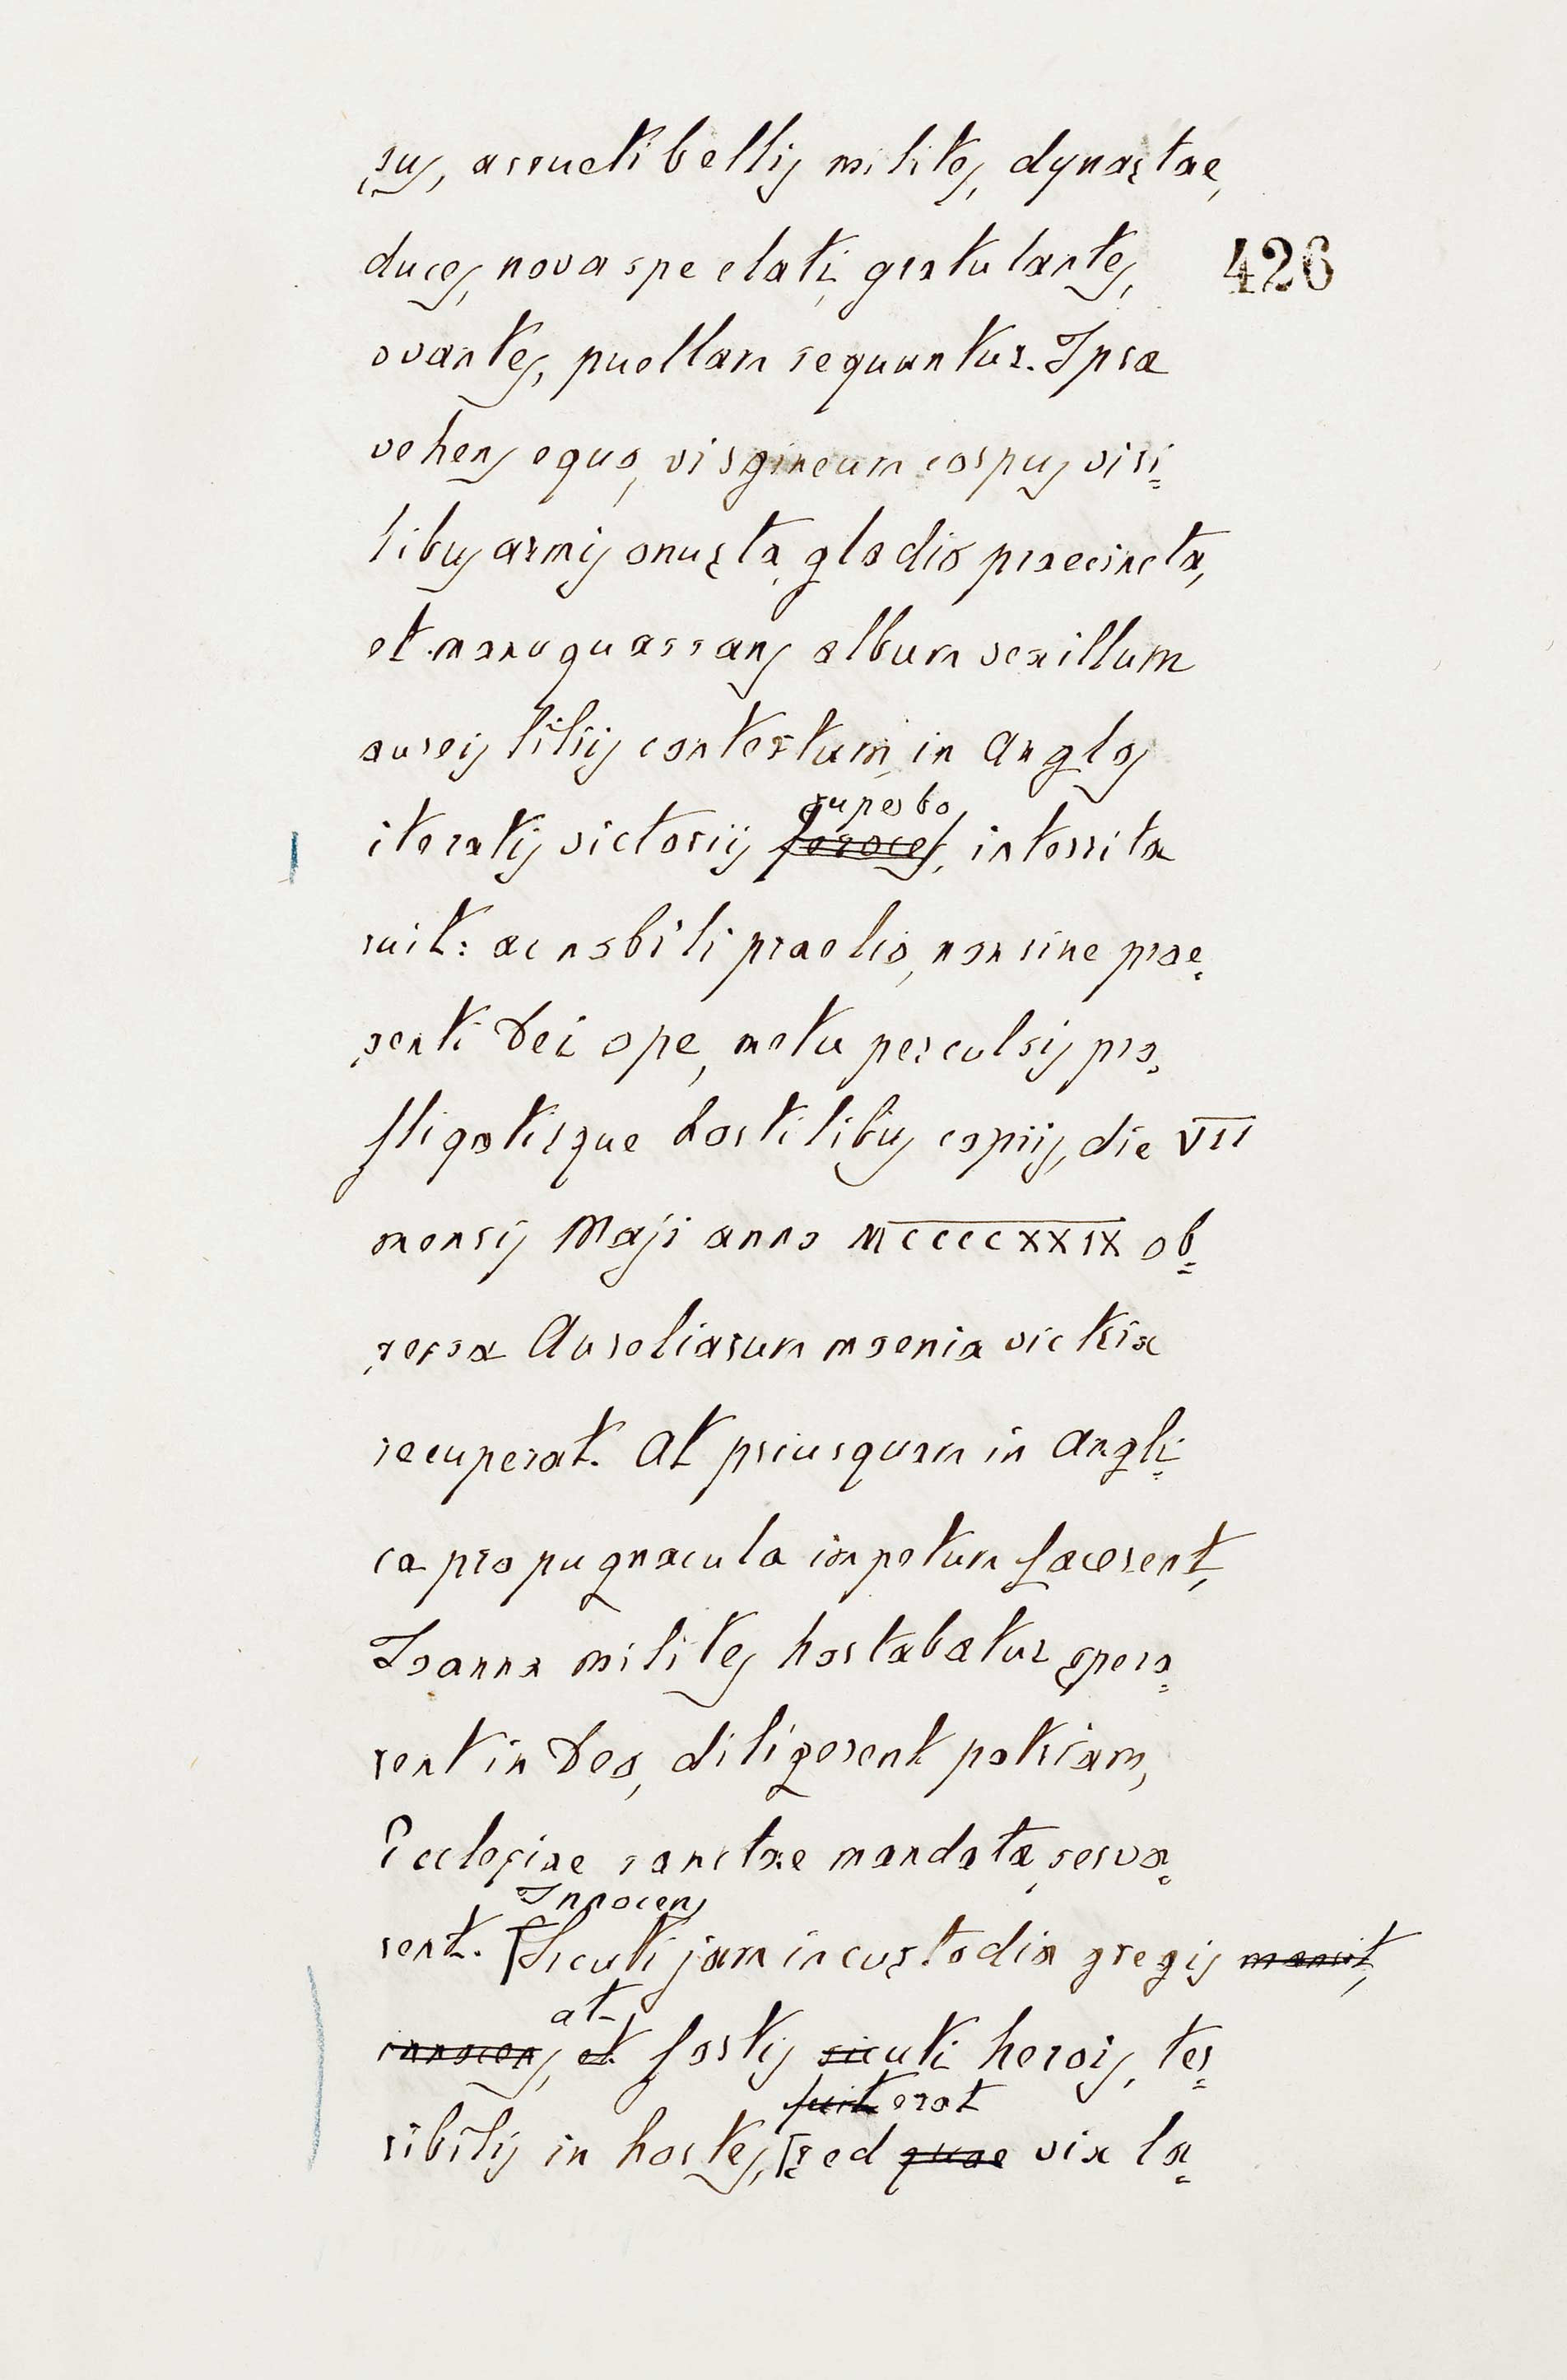 sus, assueti bellis milites, dynastae,
duces, nova spe elati, gratulantes,
426
ovantes, puellam sequuntur. Ipsa
vehens equo, virgineum corpus viri=
libus armis onusta, gladio praecincta,
et manu quassans album vexillum
aureis liliis contextum, in Anglos
superbos
iteratis victoriis feroces, interrita
ruit: ac nobili praelio, non sine prae=
senti Dei ope, metu perculsis pro=
fligatisque hostilibus copiis, die VII
mensis Maji anno MCCCCXXIX ob=
sessa Aureliarum moenia victrix
recuperat. At priusquam in Angli=
ca propugnacula impetum facerent,
Ioanna milites hortabatur spera=
rent in Deo, diligerent patriam,
Ecclesiae sanctae mandata serva=
Innocens
rent. [Sicuti jam in custodia gregis mansit,
at
innocens, et fortis sicuti herois, ter=
fuit erat
ribilis in hostes, [sed quae vix la=